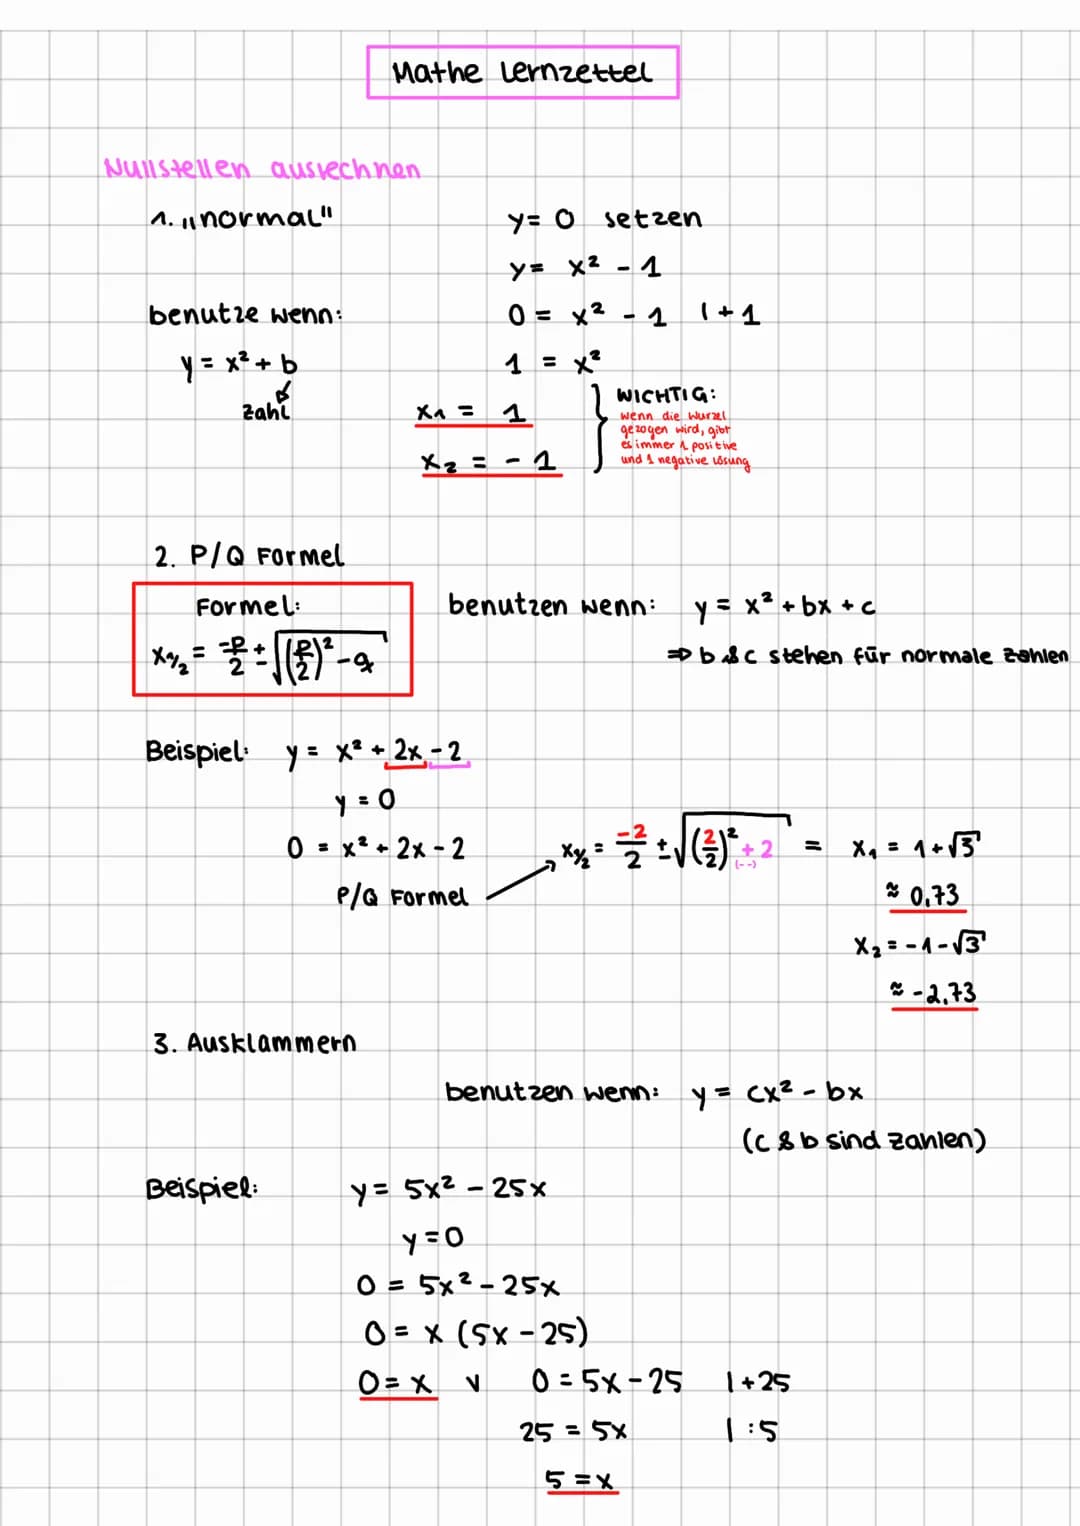 Mathe Lernzettel
Nullstellen ausrechnen
1. „normal"
y = 0 setzen
y = x² - 1
benutze wenn:
0 = x² - 1 | + 1
y = x² + b
1 = x²
zahl
x₁ = 1
x₂ = - 1
WICHTIG:
wenn die Wurzel
gezogen wird, gibt
es immer 1 positive
und 1 negative Lösung
2. P/Q Formel
Formel:
x₁/₂ = -p/2 ± √((p/2)² - q)
benutzen wenn: y = x² + bx + c
⇒ b & c stehen für normale zahlen
Beispiel: y = x² + 2x - 2
y = 0
0 = x² + 2x - 2
P/Q Formel
x₁/₂ = -2/2 ± √((2/2)² + 2) = x₁ = 1 + √3
(--)
≈ 0,73
x₂ = - 1 - √3
≈ -2,73
3. Ausklammern
benutzen wenn: y = cx² - bx
(c & b sind zahlen)
Beispiel: y = 5x² - 25x
y = 0
0 = 5x² - 25x
0 = x (5x - 25)
0 = x v 0 = 5x - 25 | + 25
25 = 5x | : 5
5 = x